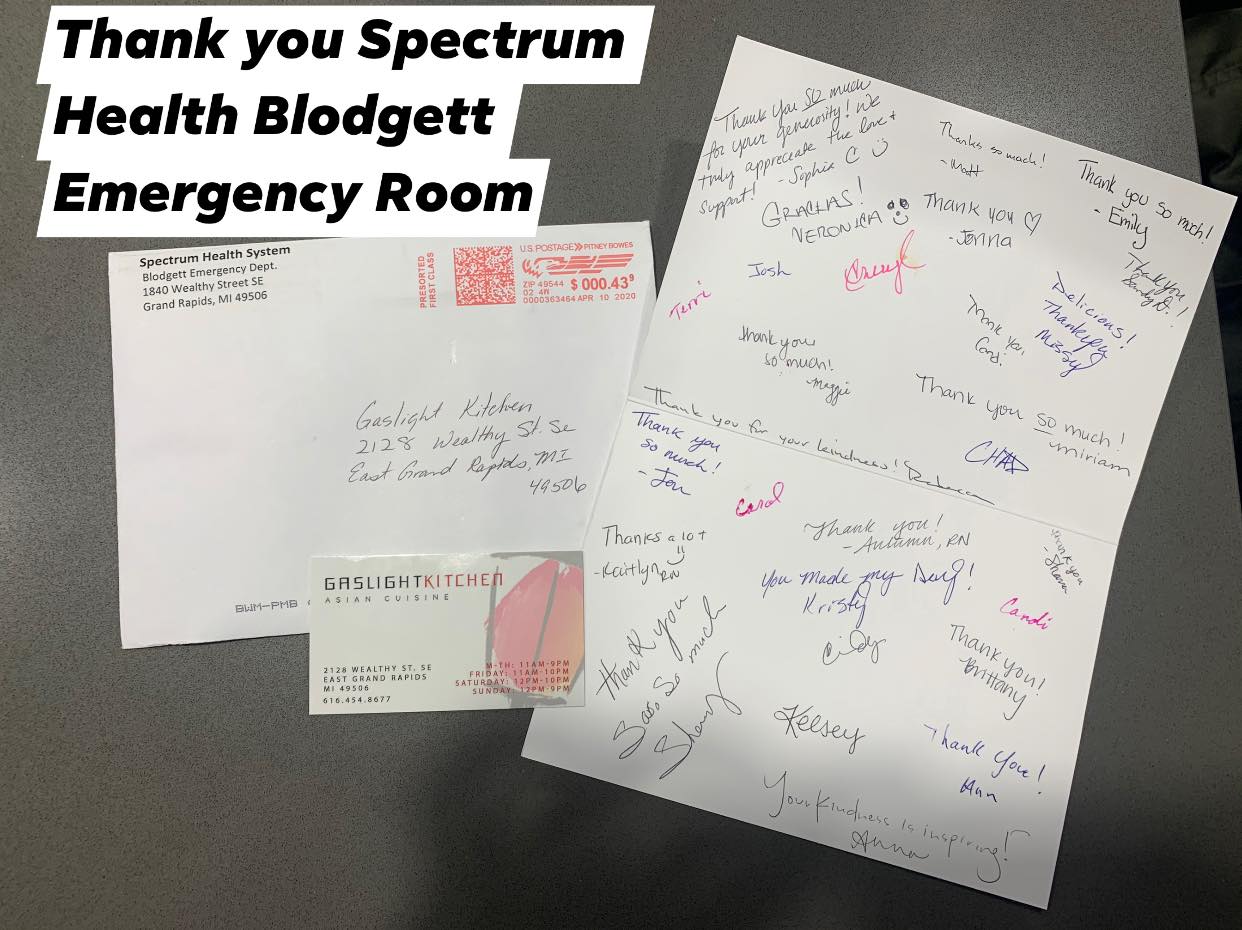 Thank you Spectrum
Health Blodgett
Emergency Room
Spectrum Health System
Blodgett Emergency Dept.
1840 Wealthy Street SE
Grand Rapids, MI 49506
PRESORTED
FIRST CLASS
U.S. POSTAGE PITNEY BOWES
ZIP 49544
02 4W
$ 000.43⁹
0000363464 APR 10 2020
Gaslight Kitchen
2128 Wealthy St. Se
East Grand Rapids, MI
49506
BWM-PMB
GASLIGHTKITCHEN
ASIAN CUISINE
2128 WEALTHY ST. SE
EAST GRAND RAPIDS
MI 49506
616.454.8677
M-TH: 11AM-9PM
FRIDAY: 11AM-10PM
SATURDAY: 12PM-10PM
SUNDAY: 12PM-9PM
Thank you so much
for your generosity! We
truly appreciate the love +
support! - Sophia C
Thanks so much!
- Matt
Thank you so much!
- Emily
GRACIAS!
VERONICA
Thank you ♡
- Jenna
Thank you
Josh
Cheryl
Terri
Delicious!
Thank you
Missy
Thank you
Thank you
so much!
- Maggie
Thank you so much!
- miriam
Thank you for your kindness! Rebecca
CHAD
Thank you
so much!
- Jon
Carol
Thanks a lot
- Kaitlyn RN
Thank you!
- Autumn, RN
Thank you
- Shawn
You made my Day!
Kristy
Candi
Cindy
Thank you!
Brittany
Thank you
so much
Kelsey
Thank You!
Ann
Your Kindness is inspiring!
Anna